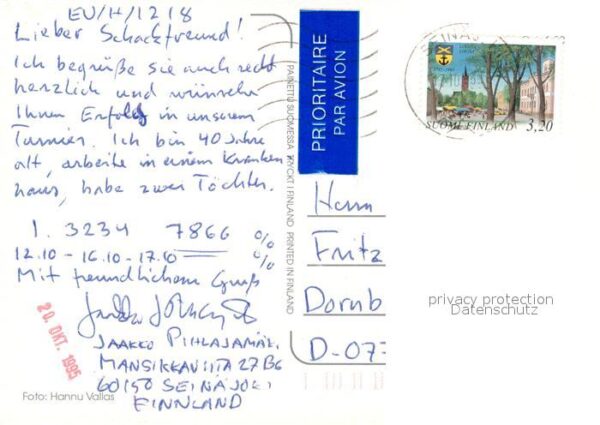 EU/H/1218
Lieber Schachfreund!
Ich begrüße sie auch recht
herzlich und wünsche
Ihnen Erfolg in unserem
Turnier. Ich bin 40 Jahre
alt, arbeite in einem Kranken
haus, habe zwei Töchter.
1. 3234 7866 %
12.10 - 16.10 - 17.10 %
Mit freundlichem Gruß
JAAKKO PIHLAJAMÄKI
MANSIKKAVIITA 27 B6
60150 SEINÄJOKI
FINNLAND
20. OKT. 1995
Foto: Hannu Vallas
PAINETTU SUOMESSA TRYCKT I FINLAND PRINTED IN FINLAND
PRIORITAIRE
PAR AVION
SUOMI FINLAND 3,20
Herrn
Fritz
Dornb
D-07
privacy protection
Datenschutz